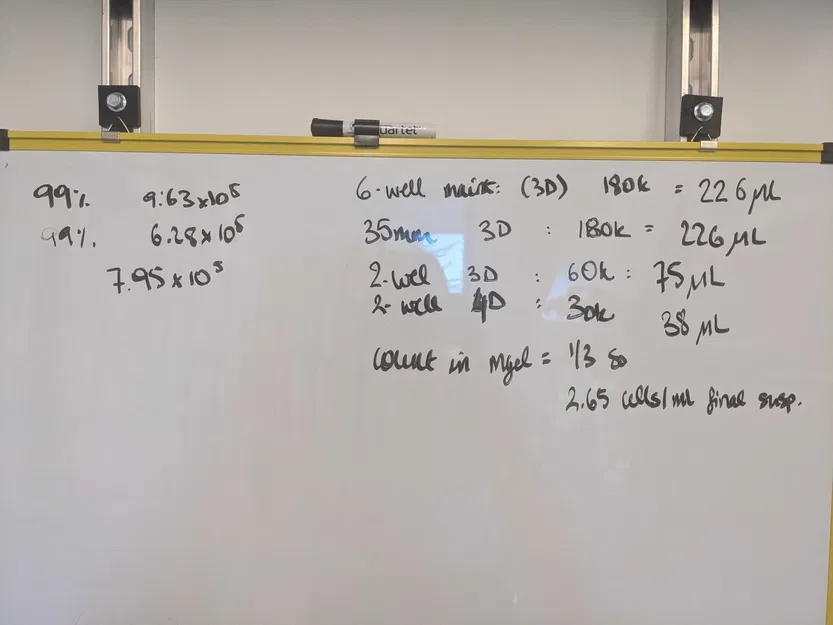 99% 9.63x10⁵
99% 6.28x10⁵
7.95x10⁵
6-well maint: (3D) 180k = 226µL
35mm 3D : 180k = 226µL
2-well 3D : 60k : 75µL
2-well 4D : 30k 38µL
count in mgel = 1/3 so
2.65 cells/ml final susp.
uartet